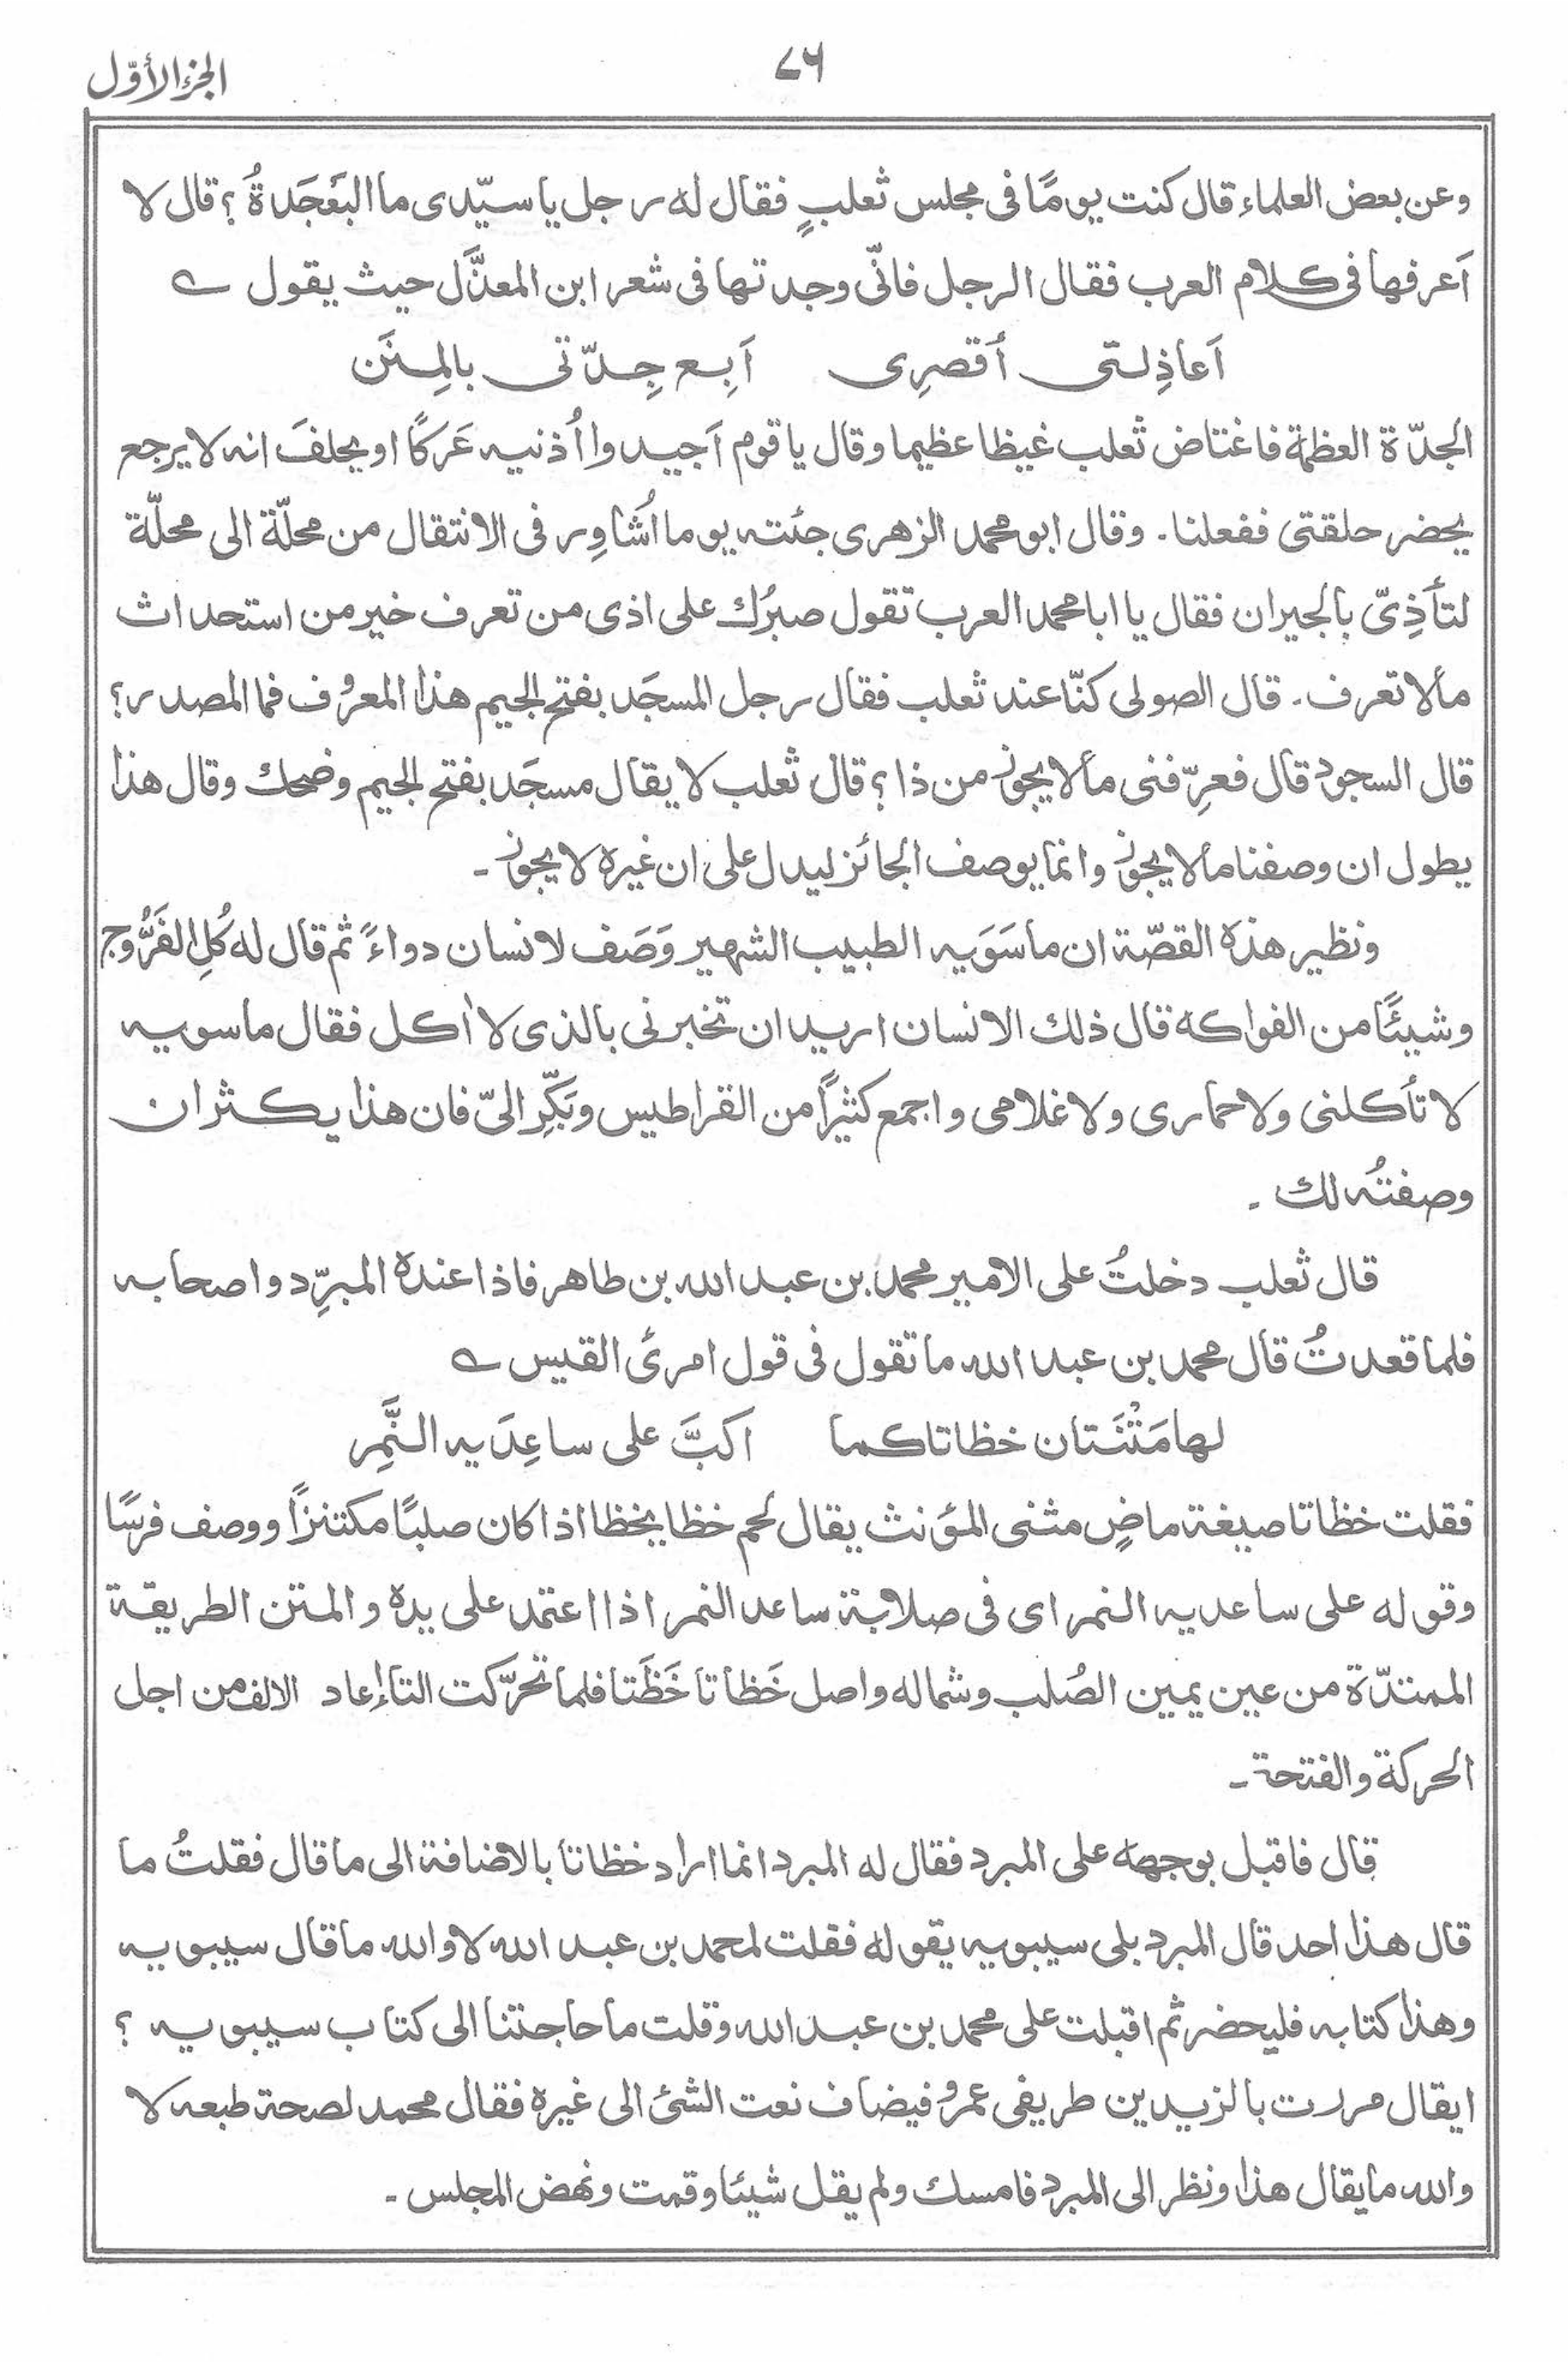 الجزء الأوّل
٧٦
وعن بعض العلماء قال كنت يومًا فى مجلس ثعلبٍ فقال له رجل يا سيّدى ما البَعَجَدةُ ؟ قال لا
اَعرفها فى كلام العرب فقال الرجل فانّى وجدتها فى شعر ابن المعذَّل حيث يقول ؎
اَعاذِلتى أقصرِى اَبِع جِدّتى بالمِنَن
الجدّة العظمة فاغتاض ثعلب غيظا عظيما وقال يا قوم اَجيدوا اُذنيه عَركًا او يحلفَ انه لا يرجع
يحضر حلقتى ففعلنا۔ وقال ابو محمد الزهرى جئته يوما اُشاوِر فى الانتقال من محلّة الى محلّة
لتأذِىّ بالجيران فقال يا ابا محمد العرب تقول صبرُك على اذى من تعرف خير من استحداث
مالا تعرف۔ قال الصولى كنّا عند ثعلب فقال رجل المسجَد بفتح الجيم هذا المعرُوف فما المصدر؟
قال السجود قال فعرِّفنى مالا يجوز من ذا ؟ قال ثعلب لا يقال مسجَد بفتح الجيم وضحك وقال هذا
يطول ان وصفنا مالا يجوز وانما يوصف الجائز ليدل على ان غيره لا يجوز۔
ونظير هذه القصّة ان ماسَوَيه الطبيب الشهير وَصَف لانسان دواءً ثم قال له كُلِ الفَرُّوج
وشيئًا من الفواكه قال ذلك الانسان اريد ان تخبرنى بالذى لا اٰكل فقال ماسويه
لا تأكلنى ولا حمارى ولا غلامى واجمع كثيرًا من القراطيس وبَكِّر الىّ فان هذا يكثر ان
وصفتُه لك ۔
قال ثعلب دخلتُ على الامير محمد بن عبد الله بن طاهر فاذا عنده المبرِّد واصحابه
فلما قعدتُ قال محمد بن عبد الله ما تقول فى قول امرئ القيس ؎
لها مَتْنَتان خظاتا كما اكبَّ على ساعِدَيه النَّمِر
فقلت خظاتا صيغة ماضٍ مثنى المؤنث يقال لحم خظا يخظا اذا كان صلبًا مكتنزًا ووصف فرسًا
وقوله على ساعديه النمر اى فى صلابة ساعد النمر اذا اعتمد على يده والمتن الطريقة
الممتدّة من عين يمين الصُلب وشماله واصل خَظاتا خَظَتا فلما تحرّكت التاء اعاد الالف من اجل
الحركة والفتحة۔
قال فاقبل بوجهه على المبرد فقال له المبرد انما اراد خظاتا بالاضافة الى ما قال فقلتُ ما
قال هذا احد قال المبرد بلى سيبويه يقوله فقلت لمحمد بن عبد الله لا والله ما قال سيبويه
وهذا كتابه فليحضر ثم اقبلت على محمد بن عبد الله وقلت ما حاجتنا الى كتاب سيبويه ؟
ايقال مررت بالزيدين طريفى عمرٍو فيضاف نعت الشئ الى غيره فقال محمد لصحة طبعه لا
والله ما يقال هذا ونظر الى المبرد فامسك ولم يقل شيئا وقمت ونهض المجلس ۔